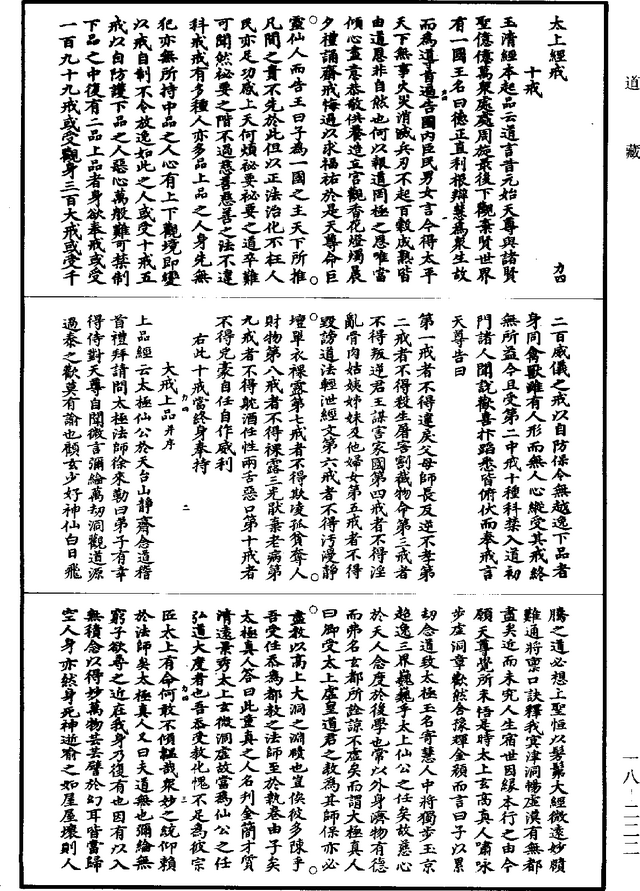 道藏
太上經戒
力四
十戒
玉清經本起品云道言昔元始天尊與諸賢
聖億億萬衆處處周旋最後下觀棄賢世界
有一國王名曰德正直利根辯慧爲衆生故
而爲道首遍告國內臣民男女言令得太平
天下無事火災消滅兵刃不起百穀成熟皆
由道恩非自然也何以報遺罔極之恩唯當
傾心盡意恭敬供養造立宮觀香花燈燭晨
夕禮誦齋戒悔過以求福祐於是天尊命巨
靈仙人而告王曰子爲一國之主天下所推
凡間之貴不先於此但以正法治化不枉人
民亦足功感上天何煩秘要秘要之道卒難
可聞然祕要之階不過慈善慈善之法不違
科戒戒有多種人亦多品上品之人身先無
犯亦無所持中品之人心有上下觀境即變
以戒自制不令放逸如此之人或受十戒五
戒以自防護下品之人惡心萬般難可禁制
下品之中復有二品上品者身欲奉戒或受
一百九十九戒或受觀身三百大戒或受千
二百威儀之戒以自防保令無越逸下品者
身同禽獸雖有人形而無人心縱受其戒終
無所益今且受第二中戒十種科禁入道初
門諸人聞說歡喜抃蹈悉皆俯伏而奉戒言
天尊告曰
第一戒者不得違戾父母師長反逆不孝第
二戒者不得殺生屠害割截物命第三戒者
不得叛逆君王謀害家國第四戒者不得淫
亂骨肉姑姨姊妹及他婦女第五戒者不得
毀謗道法輕泄經文第六戒者不得汙漫靜
壇單衣裸露第七戒者不得欺凌孤貧奪人
財物第八戒者不得裸露三光猒棄老病第
九戒者不得躭酒任性兩舌惡口第十戒者
不得兇豪自任自作威利
右此十戒當終身奉持
大戒上品并序
力四
二
上品經云太極仙公於天台山靜齋念道稽
首禮拜請問太極法師徐來勒曰弟子有幸
得侍對天尊自聞微言彌綸萬劫洞觀道源
過泰之歡莫有諭也顧玄少好神仙白日飛
騰之道必想上聖恒以髣髴大經微遠妙賾
難通將稟口訣釋我冥津洞暢虛漠有無都
盡矣近而未究人生宿世因緣本行之由今
願天尊覺所未悟是時太上玄高真人嘯咏
步虛洞章歡然含豫輝金顏而言曰子以累
劫念道致太極玉名寄慧人中將獨步玉京
超逸三界巍巍乎太上仙公之任矣故慈心
於天人念度於後學也常以外身濟物有德
而弗名玄都所詮諒不虛矣而謂太極真人
曰卿受太上虛皇道君之敎爲其師保亦必
盡敎以高上大洞之淵賾也豈俟彼多陳乎
吾受任忝爲都敎之法師至於執卷由子矣
太極真人答曰此重真之人名刋金簡才質
清遠景秀太上玄微洞虛故當爲仙公之任
弘道大度者也吾忝受敎化愧不足爲彼宗
力四
三
匠太上有命何敢不傾輒哉衆妙之統仰賴
於法師矣太極真人又曰夫道無也彌綸無
窮子欲尋之近在我身乃復有也因有以入
無積念以得妙萬物芸芸譬於幻耳皆當歸
空人身亦然身死神逝喻之如屋屋壞則人
一八-二二二